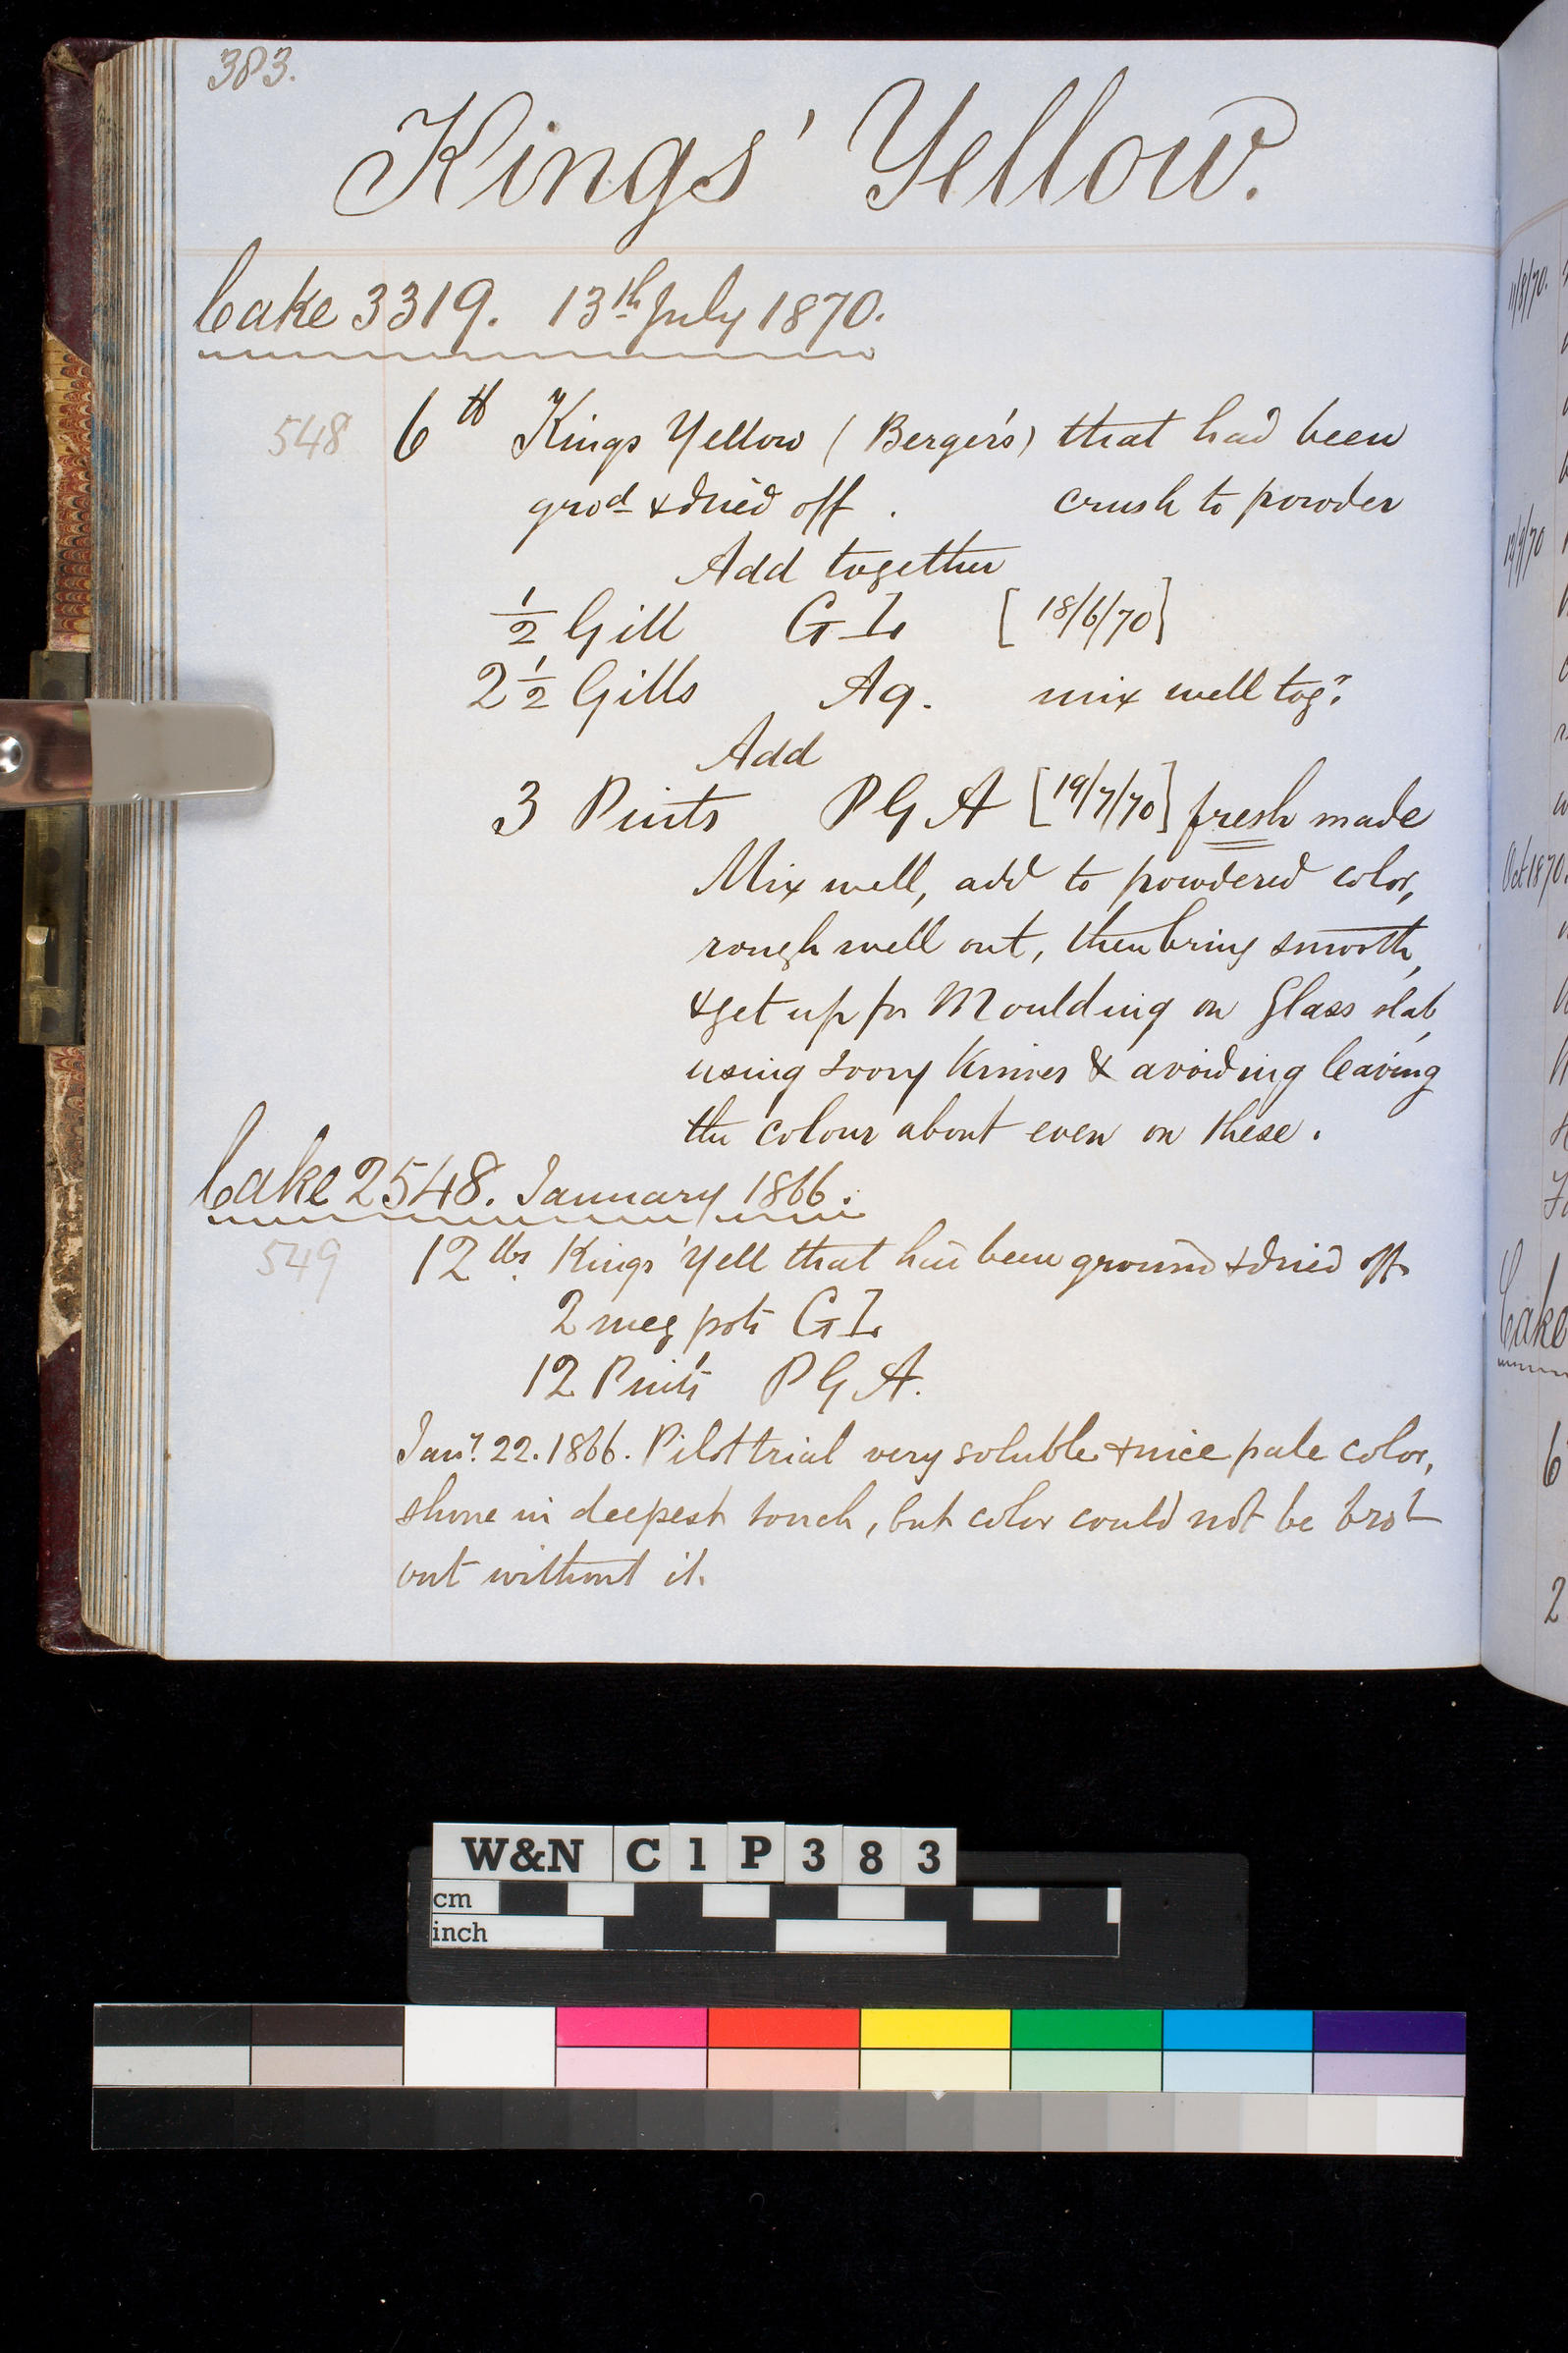 383.
Kings' Yellow.
Cake 3319. 13th July 1870.
548 6 lb Kings Yellow (Berger's) that had been
grod & dried off . crush to powder
Add together
1/2 Gill G L [18/6/70]
2 1/2 Gills Aq. mix well togr.
Add
3 Pints P G A [19/7/70] fresh made
Mix well, add to powdered color,
rough well out, then bring smooth,
& get up for Moulding on Glass slab,
using Ivory Knives & avoiding leaving
the colour about even on these.
Cake 2548. January 1866.
549 12 lbs. Kings' Yell that had been ground & dried off
2 meg pots G L
12 Pints P G A.
Jany. 22. 1866. Pilot trial very soluble & nice pale color,
shone in deepest touch, but color could not be brot
out without it.
11/8/70.
Oct 1870.
Cake
6
2
W&N C1P383
cm
inch